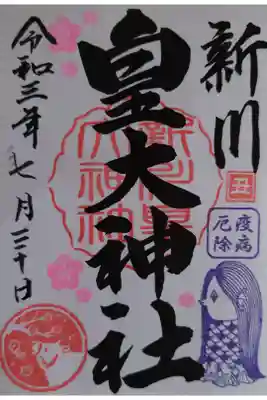 新川
皇大神社
令和三年七月三十日
丑
疫病
厄除
新川皇
大神神